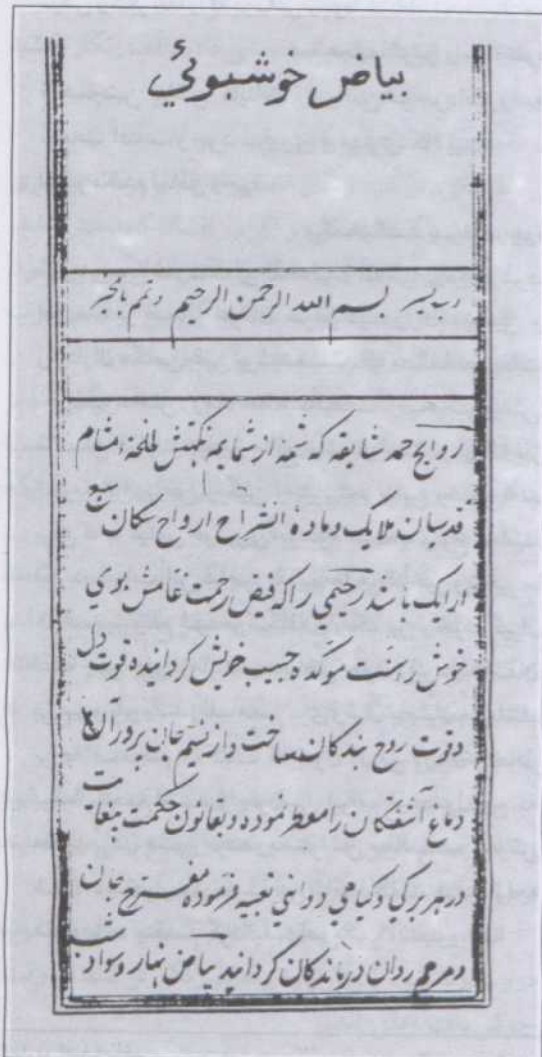 بیاض خوشبوئي
رب یسر بسم الله الرحمن الرحیم وتمم بالخیر
روایح حمد شایقه که شمه از شمایم نکهتش طلخهٔ مشام
قدسیان ملایک ومادهٔ انشراح ارواح سکان سبع
ارائک باشد رحیمی راکه فیض رحمت عامش بوي
خوش راسنت موکده حبیب خویش کردانیده قوت دل
وقوت روح بندکان ساخت واز نسیم جان پرور
دماغ آشفتکان رامعطر نموده وبقانون حکمت بغایت
درهر برکي وکیاهي دوائي تعبیه فرموده مفرح جان
ومرهم روان درماندکان کردانید بیاض نهار وسواد